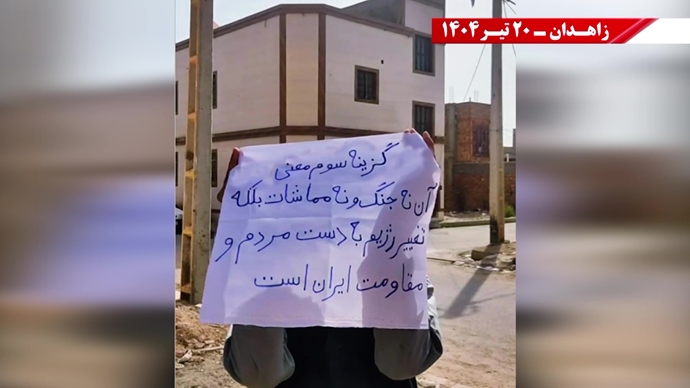 زاهـدان ــ ۲۰ تیـر ۱۴۰۴
گزینه سوم معنی
آن نه جنگ و نه مماشات بلکه
تغییر رژیم با دست مردم و
مقاومت ایران است